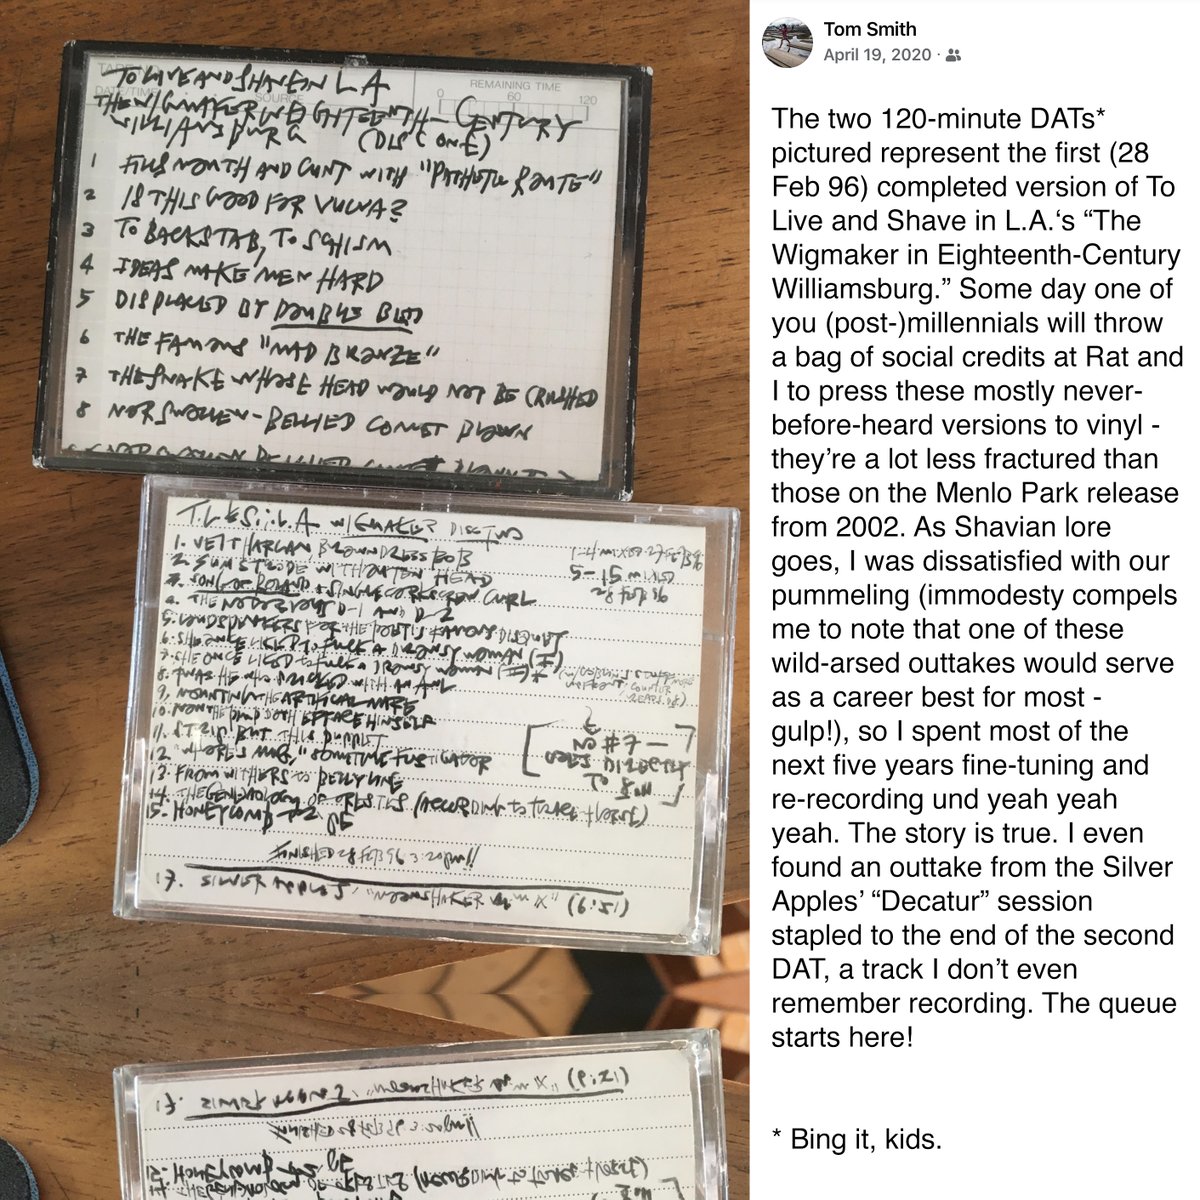 TO LIVE AND SHAVE IN L A
TAPE NO.
DATE/TIME
SOURCE
REMAINING TIME
0 60 120
THE WIGMAKER IN EIGHTEENTH-CENTURY
WILLIAMSBURG (DISC ONE)
1 FILLS MOUTH AND CUNT WITH "PATHETIC ROUTE"
2 IS THIS GOOD FOR VULVA?
3 TO BACKSTAB, TO SCHISM
4 IDEAS MAKE MEN HARD
5 DISPLACED BY DOUBUS BLED
6 THE FAMOUS "MAD BRONZE"
7 THE SNAKE WHOSE HEAD WOULD NOT BE CRUSHED
8 NOR SWOLLEN-BELLIED COMET BLOWN
T.L.&S.i.L.A WIGMAKER DISC TWO
1. VEIT HARLAN BROWN DRESS BOB
2. SUNSTRODE WITHOUTEN HEAD
3. SONG OF ROLAND + SINGLE CORKSCREW CURL
4. THE NODOROUS D-1 AND D-2
5. LOUDSPEAKERS FOR THE POET'S FAMOUS DISGUST
6. SHE ONCE LIKED TO FUCK A DROWSY WOMAN (I)
7. SHE ONCE LIKED TO FUCK A DROWSY WOMAN (II)
8. TWAS HE WHO PRICKED WITH AN AWL
9. MOUNTING THE ARTIFICIAL MARE
10. NOW THE DOTH EFFACE HIMSELF
11. STRIP, BUT THIS PUPPET
12. "WHORE'S MUG," SOMETIME FUSTIGATOR
13. FROM WITHERS TO BELLY LINE
14. THE GENEALOGY OF (ACCORDING TO
15. HONEYCOMB
1-4 MIXED 27 FEB 96
5-15 MIXED
28 FEB 96
#7 —
GOES DIRECTLY
TO
FINISHED 28 FEB 96 3:20 PM!!
17. SILVER APPLES, "MOONSHAKER X" (6:51)
Tom Smith
April 19, 2020 ·
The two 120-minute DATs*
pictured represent the first (28
Feb 96) completed version of To
Live and Shave in L.A.‘s “The
Wigmaker in Eighteenth-Century
Williamsburg.” Some day one of
you (post-)millennials will throw
a bag of social credits at Rat and
I to press these mostly never-
before-heard versions to vinyl -
they’re a lot less fractured than
those on the Menlo Park release
from 2002. As Shavian lore
goes, I was dissatisfied with our
pummeling (immodesty compels
me to note that one of these
wild-arsed outtakes would serve
as a career best for most -
gulp!), so I spent most of the
next five years fine-tuning and
re-recording und yeah yeah
yeah. The story is true. I even
found an outtake from the Silver
Apples’ “Decatur” session
stapled to the end of the second
DAT, a track I don’t even
remember recording. The queue
starts here!
* Bing it, kids.